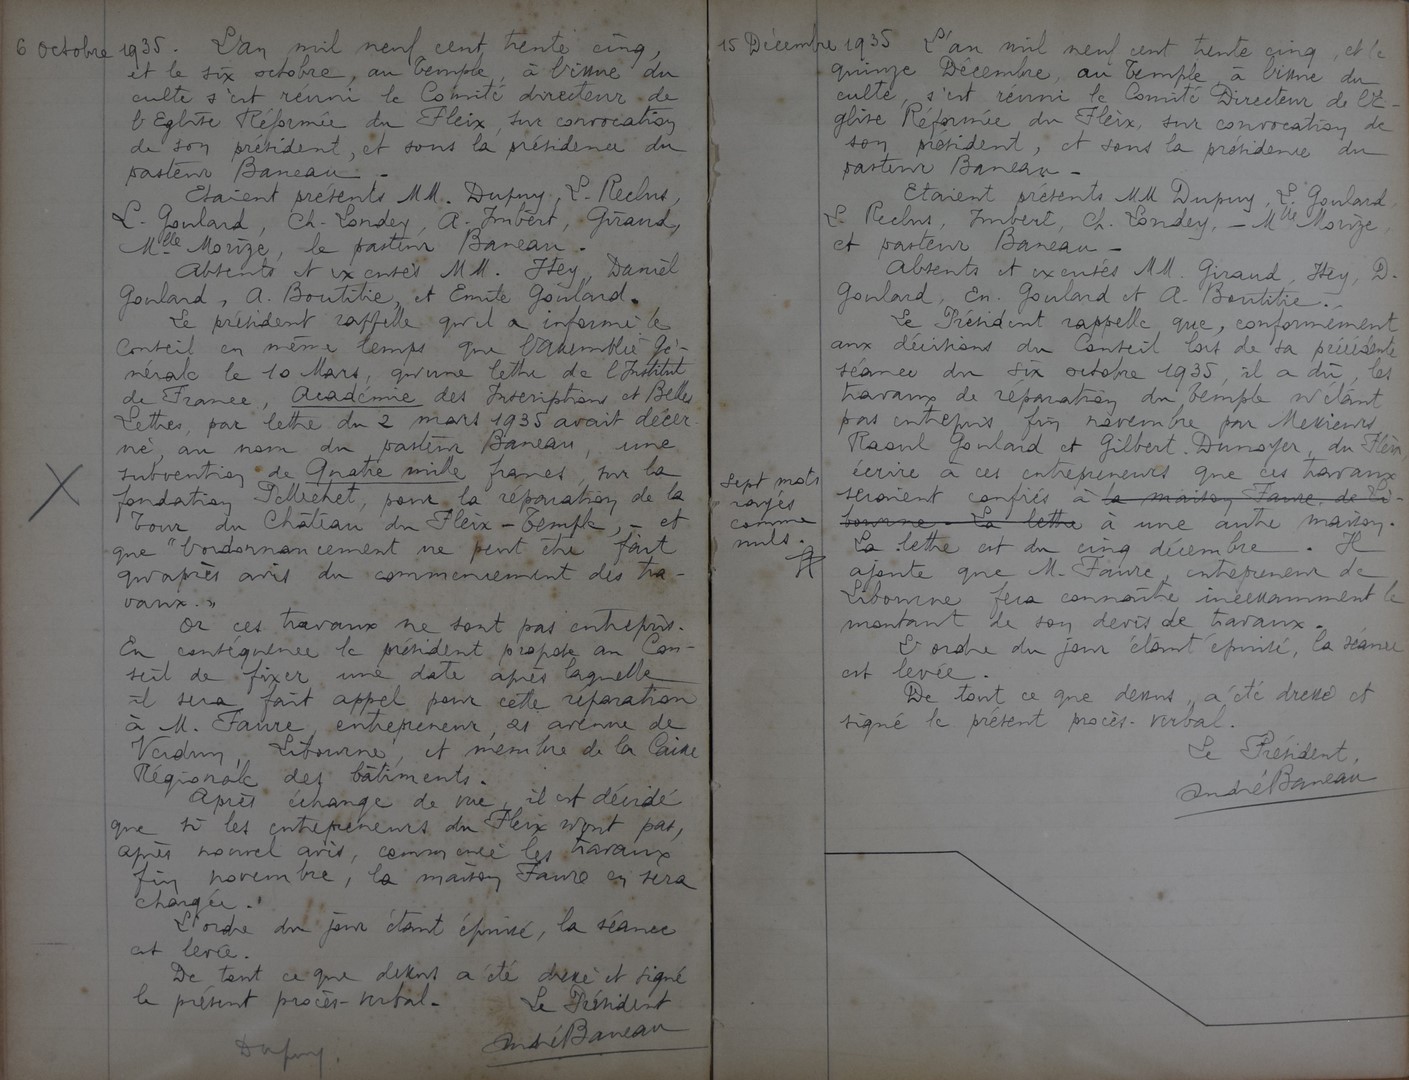 6 Octobre 1935. L'an mil neuf cent trente cinq,
et le six octobre, au Temple, à l'issue du
culte s'est réuni le Comité directeur de
l'Eglise Réformée du Fleix, sur convocation
de son président, et sous la présidence du
pasteur Baneau -
Etaient présents MM. Dupuy, L. Reclus,
L. Goulard, Ch. Londey, A. Imbert, Giraud,
Mlle Morize, le pasteur Baneau -
Absents et excusés MM. Itey, Daniel
Goulard, A. Boutitie, et Emile Goulard.
Le président rappelle qu'il a informé le
Conseil en même temps que l'Assemblée Gé-
nérale le 10 Mars, qu'une lettre de l'Institut
de France, Académie des Inscriptions et Belles
Lettres, par lettre du 2 mars 1935 avait décer-
né, au nom du pasteur Baneau, une
subvention de Quatre mille francs, sur la
fondation Pellechet, pour la réparation de la
Tour du Château du Fleix - Temple, - et
que "l'ordonnancement ne peut être fait
qu'après avis du commencement des tra-
vaux."
Or ces travaux ne sont pas entrepris.
En conséquence le président propose au Con-
seil de fixer une date après laquelle
il sera fait appel pour cette réparation
à M. Faure, entrepreneur, avenue de
Verdun, Libourne, et membre de la Caisse
Régionale des bâtiments.
Après échange de vue, il est décidé
que si les entrepreneurs du Fleix n'ont pas,
après nouvel avis, commencé les travaux
fin novembre, la maison Faure en sera
chargée.
L'ordre du jour étant épuisé, la séance
est levée.
De tout ce que dessus a été dressé et signé
le présent procès-verbal.
Le Président
André Baneau
Dupuy.
15 Décembre 1935 L'an mil neuf cent trente cinq, et le
quinze Décembre, au Temple, à l'issue du
culte, s'est réuni le Comité Directeur de l'E-
glise Réformée du Fleix, sur convocation de
son président, et sous la présidence du
pasteur Baneau -
Etaient présents MM Dupuy, L. Goulard,
L. Reclus, Imbert, Ch. Londey, - Mlle Morize,
et pasteur Baneau -
Absents et excusés MM. Giraud, Itey, D.
Goulard, Em. Goulard et A. Boutitie. -
Le Président rappelle que, conformément
aux décisions du Conseil lors de sa précédente
séance du six octobre 1935, il a dû, les
travaux de réparation du temple n'étant
pas entrepris fin novembre par Messieurs
Raoul Goulard et Gilbert Dumoyer, du Fleix,
écrire à ces entrepreneurs que ces travaux
seraient confiés à la maison Faure de Li-
bourne - La lettre à une autre maison.
La lettre est du cinq décembre. Il
ajoute que M. Faure, entrepreneur de
Libourne fera connaître incessamment le
montant de son devis de travaux.
L'ordre du jour étant épuisé, la séance
est levée.
De tout ce que dessus, a été dressé et
signé le présent procès-verbal.
Le Président,
André Baneau
sept mots
rayés
comme
nuls.